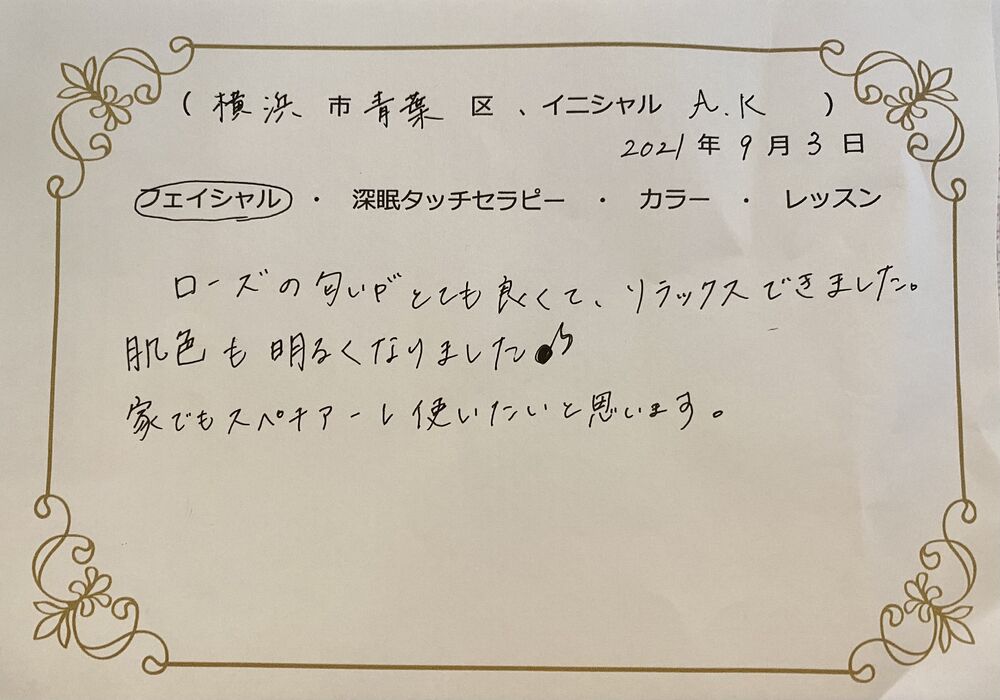 ( 横浜 市 青葉 区 、イニシャル A.K )
2021 年 9 月 3 日
フェイシャル ・ 深眠タッチセラピー ・ カラー ・ レッスン
ローズの匂いがとても良くて、リラックスできました。
肌色も明るくなりました♪
家でもスペチアーレ使いたいと思います。